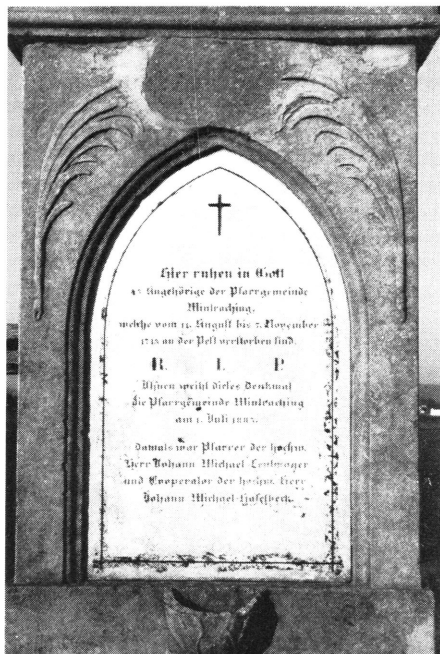 Hier ruhen in Gott
47 Angehörige der Pfarrgemeinde
Mintraching,
welche vom 14. August bis 7. November
1713 an der Pest verstorben sind.
R. I. P.
Ihnen weiht dieses Denkmal
die Pfarrgemeinde Mintraching
am 1. Juli
Damals war Pfarrer der hochw.
Herr Johann Michael
und Cooperator der hochw. Herr
Johann Michael Haselbeck.